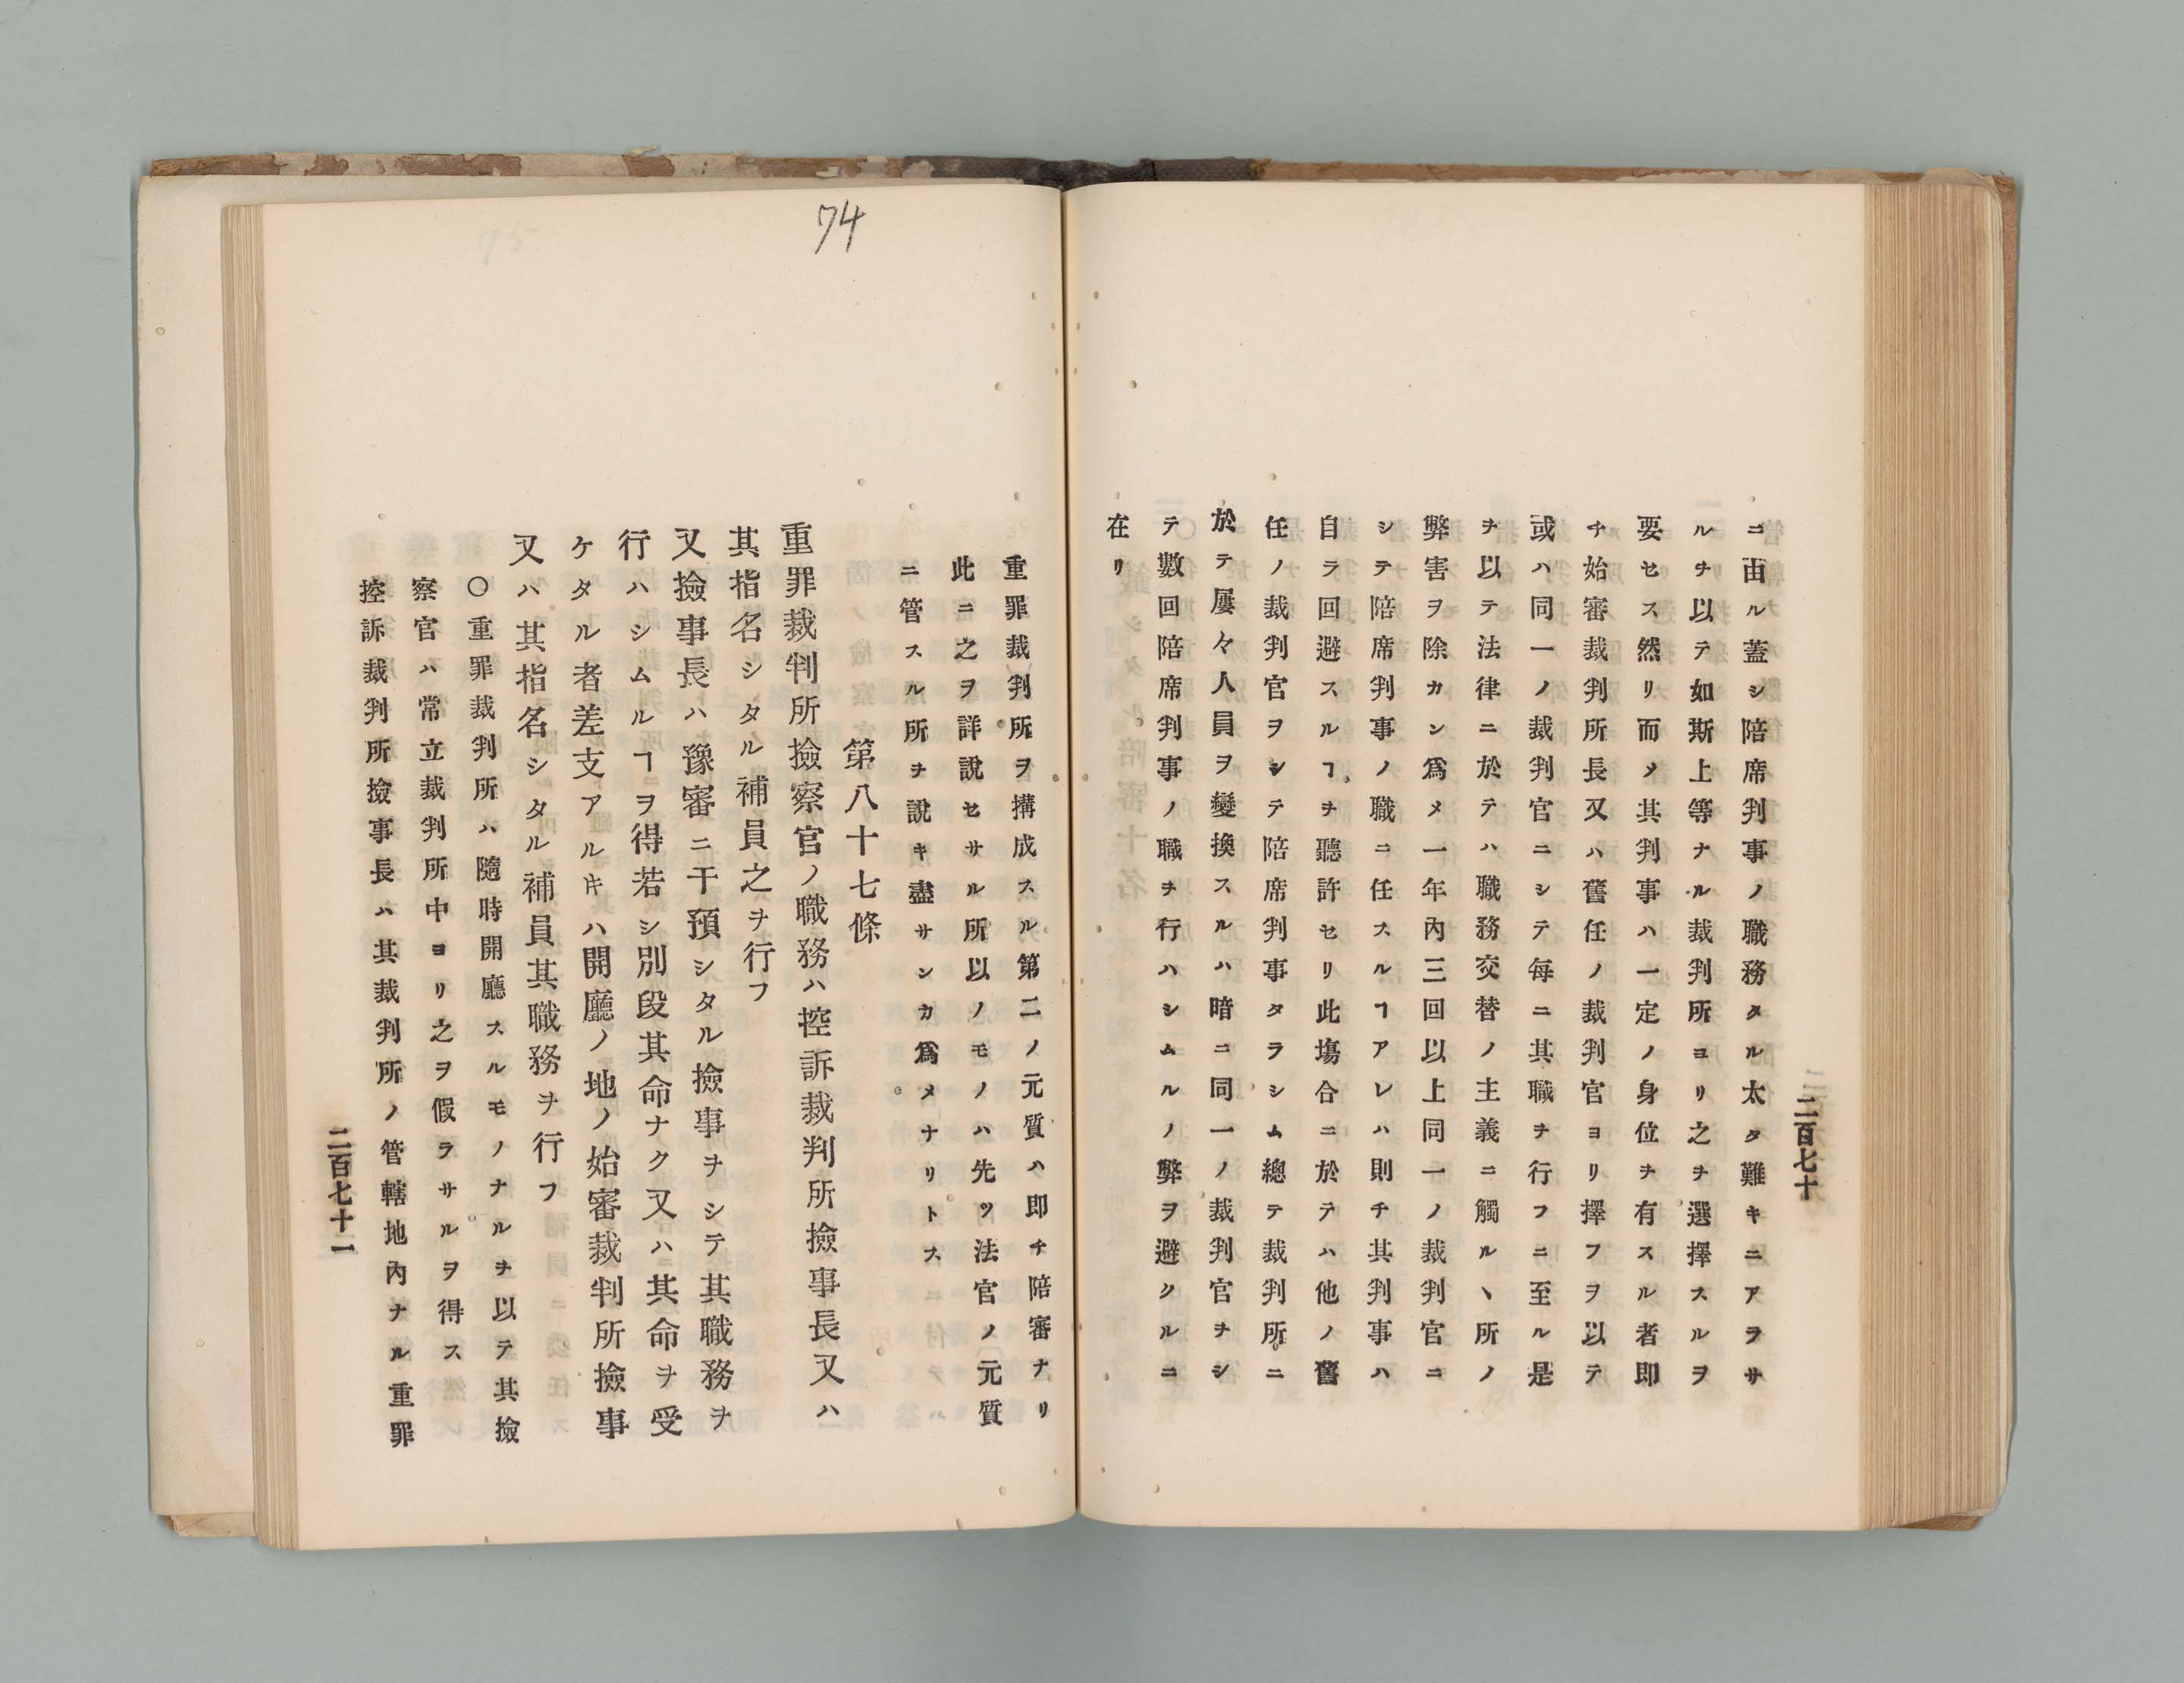 二百七十
ニ由ル蓋シ陪席判事ノ職務タル太タ難キニアラサ
ルヲ以テ如斯上等ナル裁判所ヨリ之ヲ選擇スルヲ
要セス然リ而メ其判事ハ一定ノ身位ヲ有スル者即
チ始審裁判所長又ハ舊任ノ裁判官ヨリ擇フヲ以テ
或ハ同一ノ裁判官ニシテ毎ニ其職ヲ行フニ至ル是
ヲ以テ法律ニ於テハ職務交替ノ主義ニ觸ルヽ所ノ
弊害ヲ除カン爲メ一年內三回以上同一ノ裁判官ニ
シテ陪席判事ノ職ニ任スルヿアレハ則チ其判事ハ
自ラ回避スルヿヲ聽許セリ此塲合ニ於テハ他ノ舊
任ノ裁判官ヲシテ陪席判事タラシム總テ裁判所ニ
於テ屢々人員ヲ變換スルハ暗ニ同一ノ裁判官ヲシ
テ數回陪席判事ノ職ヲ行ハシムルノ弊ヲ避クルニ
在リ
74
重罪裁判所ヲ搆成スル第二ノ元質ハ即チ陪審ナリ
此ニ之ヲ詳說セサル所以ノモノハ先ツ法官ノ元質
ニ管スル所ヲ說キ盡サンカ爲メナリトス
第八十七條
重罪裁判所撿察官ノ職務ハ控訴裁判所撿事長又ハ
其指名シタル補員之ヲ行フ
又撿事長ハ豫審ニ干預シタル撿事ヲシテ其職務ヲ
行ハシムルヿヲ得若シ別段其命ナク又ハ其命ヲ受
ケタル者差支アルキハ開廳ノ地ノ始審裁判所撿事
又ハ其指名シタル補員其職務ヲ行フ
〇重罪裁判所ハ隨時開廳スルモノナルヲ以テ其撿
察官ハ常立裁判所中ヨリ之ヲ假ラサルヲ得ス
控訴裁判所撿事長ハ其裁判所ノ管轄地內ナル重罪
二百七十一